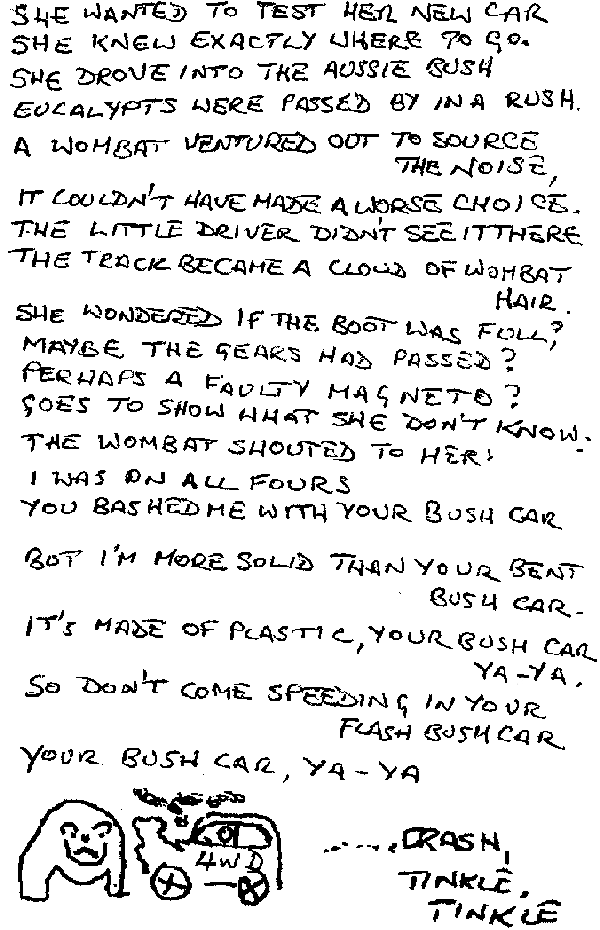 SHE WANTED TO TEST HER NEW CAR
SHE KNEW EXACTLY WHERE TO GO.
SHE DROVE INTO THE AUSSIE BUSH
EUCALYPTS WERE PASSED BY IN A RUSH.
A WOMBAT VENTURED OUT TO SOURCE
THE NOISE,
IT COULDN'T HAVE MADE A WORSE CHOICE.
THE LITTLE DRIVER DIDN'T SEE IT THERE
THE TRACK BECAME A CLOUD OF WOMBAT
HAIR.
SHE WONDERED IF THE BOOT WAS FULL?
MAYBE THE GEARS HAD PASSED?
PERHAPS A FAULTY MAGNETO?
GOES TO SHOW WHAT SHE DON'T KNOW.
THE WOMBAT SHOUTED TO HER!
I WAS ON ALL FOURS
YOU BASHED ME WITH YOUR BUSH CAR
BUT I'M MORE SOLID THAN YOUR BENT
BUSH CAR.
IT'S MADE OF PLASTIC, YOUR BUSH CAR
YA-YA.
SO DON'T COME SPEEDING IN YOUR
FLASH BUSH CAR
YOUR BUSH CAR, YA-YA
4WD
.......CRASH,
TINKLE,
TINKLE